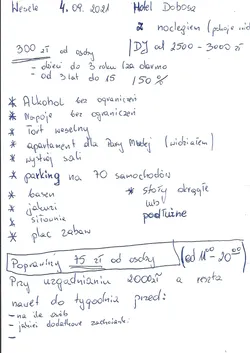 Wesele 4.09.2021 Hotel Dobosz
z noclegiem (pokoje
300 zł od osoby | DJ od 2500 - 3000 zł
- dzieci do 3 roku za darmo
- od 3 lat do 15 | 50%
* Alkohol bez ograniczeń
* Napoje bez ograniczeń
* Tort weselny
* apartament dla Pary Młodej (widziałem)
* wystrój sali
* parking na 70 samochodów
* basen * stoły okrągłe
* jakuzi lub
* siłownia podłużne
* plac zabaw
Poprawiny 75 zł od osoby (od 11⁰⁰ - 20⁰⁰)
Przy uzgadnianiu 2000zł a reszta
nawet do tygodnia przed:
- na ile osób
- jakieś dodatkowe zachcianki
-